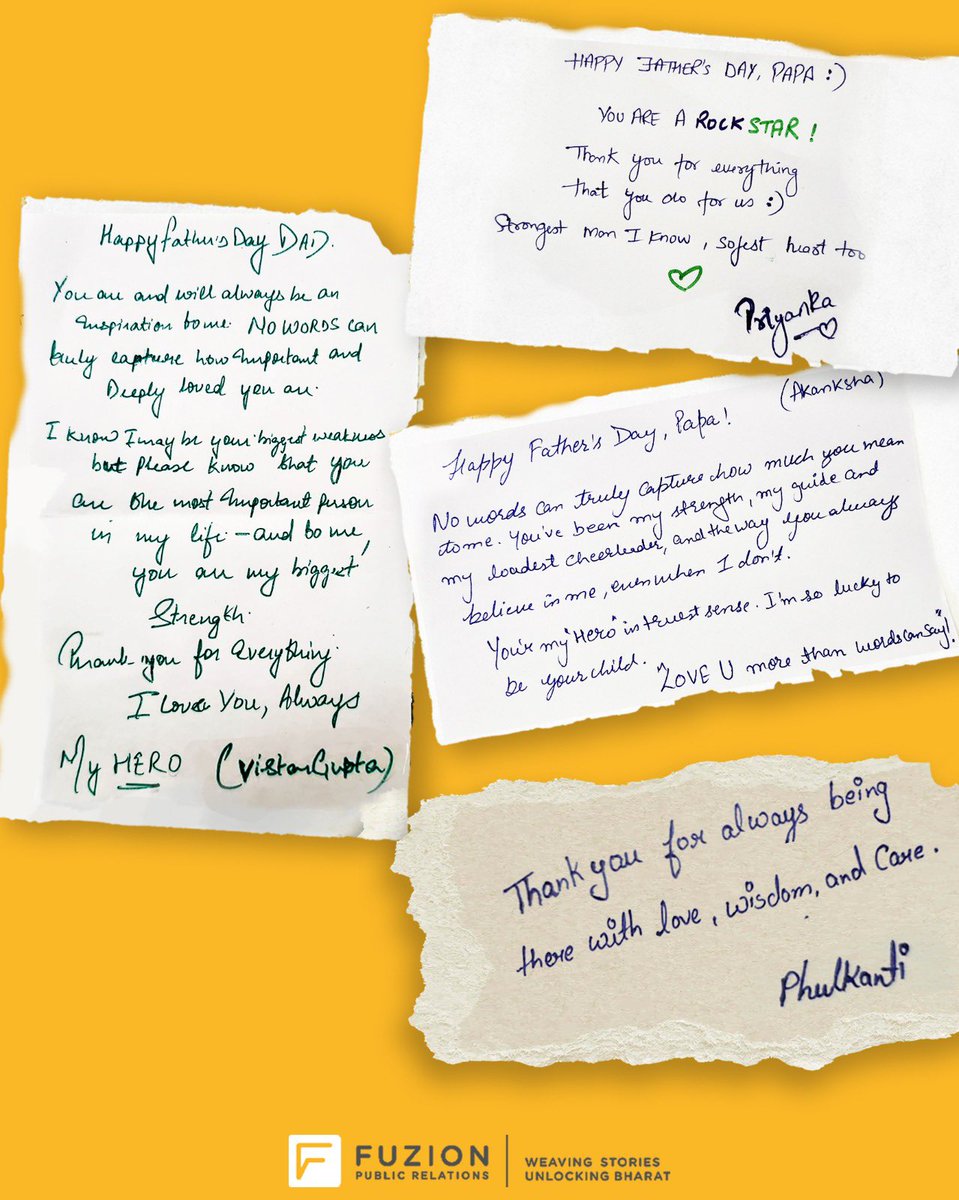 HAPPY FATHER'S DAY, PAPA :)
YOU ARE A ROCKSTAR!
Thank you for everything
that you do for us :)
Strongest man I know, sofest heart too
Priyanka
Happy father's Day DAD.
You are and will always be an
inspiration to me. NO WORDS can
truly capture how important and
Deeply loved you are.
I know I may be your biggest weakness
but Please know that you
are the most important person
in my life - and to me,
you are my biggest
Strength.
Thank you for Everything.
I Love You, Always
My HERO (Vistar Gupta)
(Akanksha)
Happy Father's Day, Papa!
No words can truly capture how much you mean
to me. You've been my strength, my guide and
my loudest cheerleader, and the way you always
believe in me, even when I don't.
You're my "Hero" in truest sense. I'm so lucky to
be your child. "LOVE U more than words can say"!
Thank you for always being
there with love, wisdom, and Care.
Phulkanti
FUZION
PUBLIC RELATIONS
WEAVING STORIES
UNLOCKING BHARAT